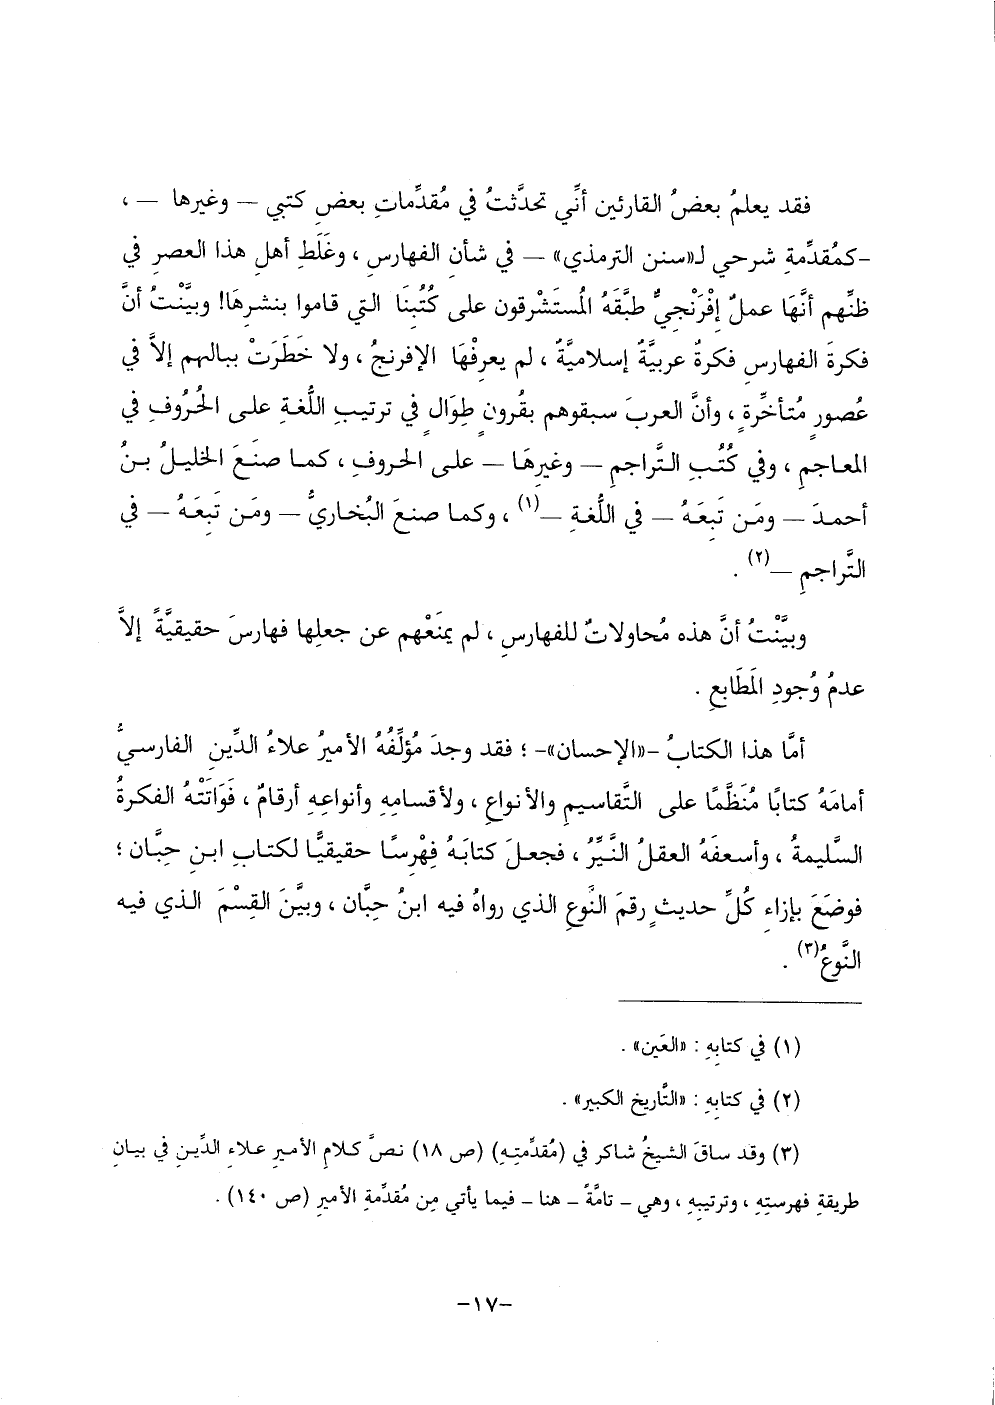 فقد يعلمُ بعضُ القارئين أنِّي تحدَّثتُ في مُقدِّماتِ بعضِ كتبي – وغيرها – ،
-كمُقدِّمةِ شرحي لـ«سنن الترمذي» – في شأن الفهارسِ ، وغَلَطِ أهل هذا العصرِ في
ظنِّهم أنَّهَا عملٌ إفْرَنْجيٌّ طبَّقهُ المُستَشْرقون على كُتُبنَا التي قاموا بنشرهَا! وبيَّنْتُ أنَّ
فكرةَ الفهارسِ فكرةٌ عربيَّةٌ إسلاميَّةٌ ، لم يعرفْهَا الإفرنجُ ، ولا خَطَرَتْ ببالهم إلاَّ في
عُصورٍ مُتأخِّرةٍ ، وأنَّ العربَ سبقوهم بقُرونٍ طِوَالٍ في ترتيبِ اللُّغة على الحُرُوفِ في
المعاجمِ ، وفي كُتُبِ التَّراجمِ – وغيرهَا – على الحروفِ ، كما صنَعَ الخليلُ بنُ
أحمدَ – ومَن تَبِعَهُ – في اللُّغةِ –(١) ، وكما صنعَ البُخاريُّ – ومَن تَبِعَهُ – في
التَّراجمِ –(٢) .
وبيَّنْتُ أنَّ هذه مُحاولاتٌ للفهارسِ ، لم يمنَعْهم عن جعلِها فهارسَ حقيقيَّةً إلاَّ
عدمُ وُجودِ المَطَابعِ .
أمَّا هذا الكتابُ -«الإحسان»- ؛ فقد وجدَ مُؤلِّفُهُ الأميرُ علاءُ الدِّينِ الفارسيُّ
أمامَهُ كتابًا مُنَظَّمًا على التَّقاسيمِ والأنواعِ ، ولأقسامِهِ وأنواعِهِ أرقامٌ ، فَوَاتَتْهُ الفكرةُ
السَّليمةُ ، وأسعفَهُ العقلُ النَّيِّرُ ، فجعلَ كتابَهُ فِهْرسًا حقيقيًّا لكتابِ ابنِ حِبَّان ؛
فوضَعَ بإزاءِ كُلِّ حديثٍ رقمَ النَّوعِ الذي رواهُ فيه ابنُ حِبَّان ، وبيَّنَ القِسْمَ الذي فيه
النَّوعُ(٣) .
(١) في كتابِهِ : «العَين» .
(٢) في كتابِهِ : «التَّاريخ الكبير» .
(٣) وقد ساقَ الشيخُ شاكر في (مُقدِّمتِهِ) (ص ١٨) نصَّ كلامِ الأميرِ علاءِ الدِّينِ في بيانِ
طريقةِ فهرستِهِ ، وترتيبِهِ ، وهي – تامَّةً – هنا – فيما يأتي مِن مُقدِّمةِ الأميرِ (ص ١٤٠) .
-١٧-